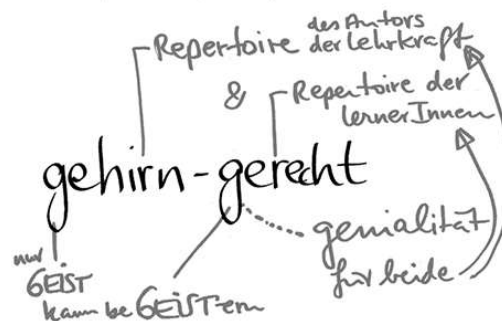 Repertoire des Autors
der Lehrkraft
& Repertoire der
lernerInnen
gehirn-gerecht
genialität
für beide
nur
GEIST
kann beGEISTern